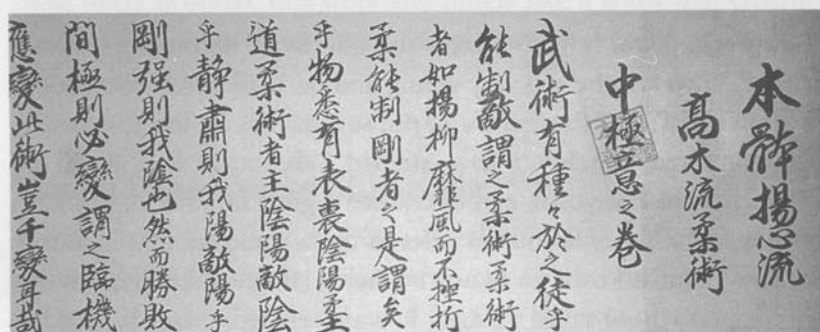 本骵揚心流
髙木流柔術
中極意之巻
武術有種々於之徒乎
能制敵謂之柔術柔術
者如揚柳靡風而不挫折
柔能制剛者之是謂矣
乎物悉有表裏陰陽柔
道柔術者主陰陽敵陰
乎静肅則我陽敵陽乎
剛强則我陰也然而勝敗
間極則必變謂之臨機
應變此術豈千變耳哉